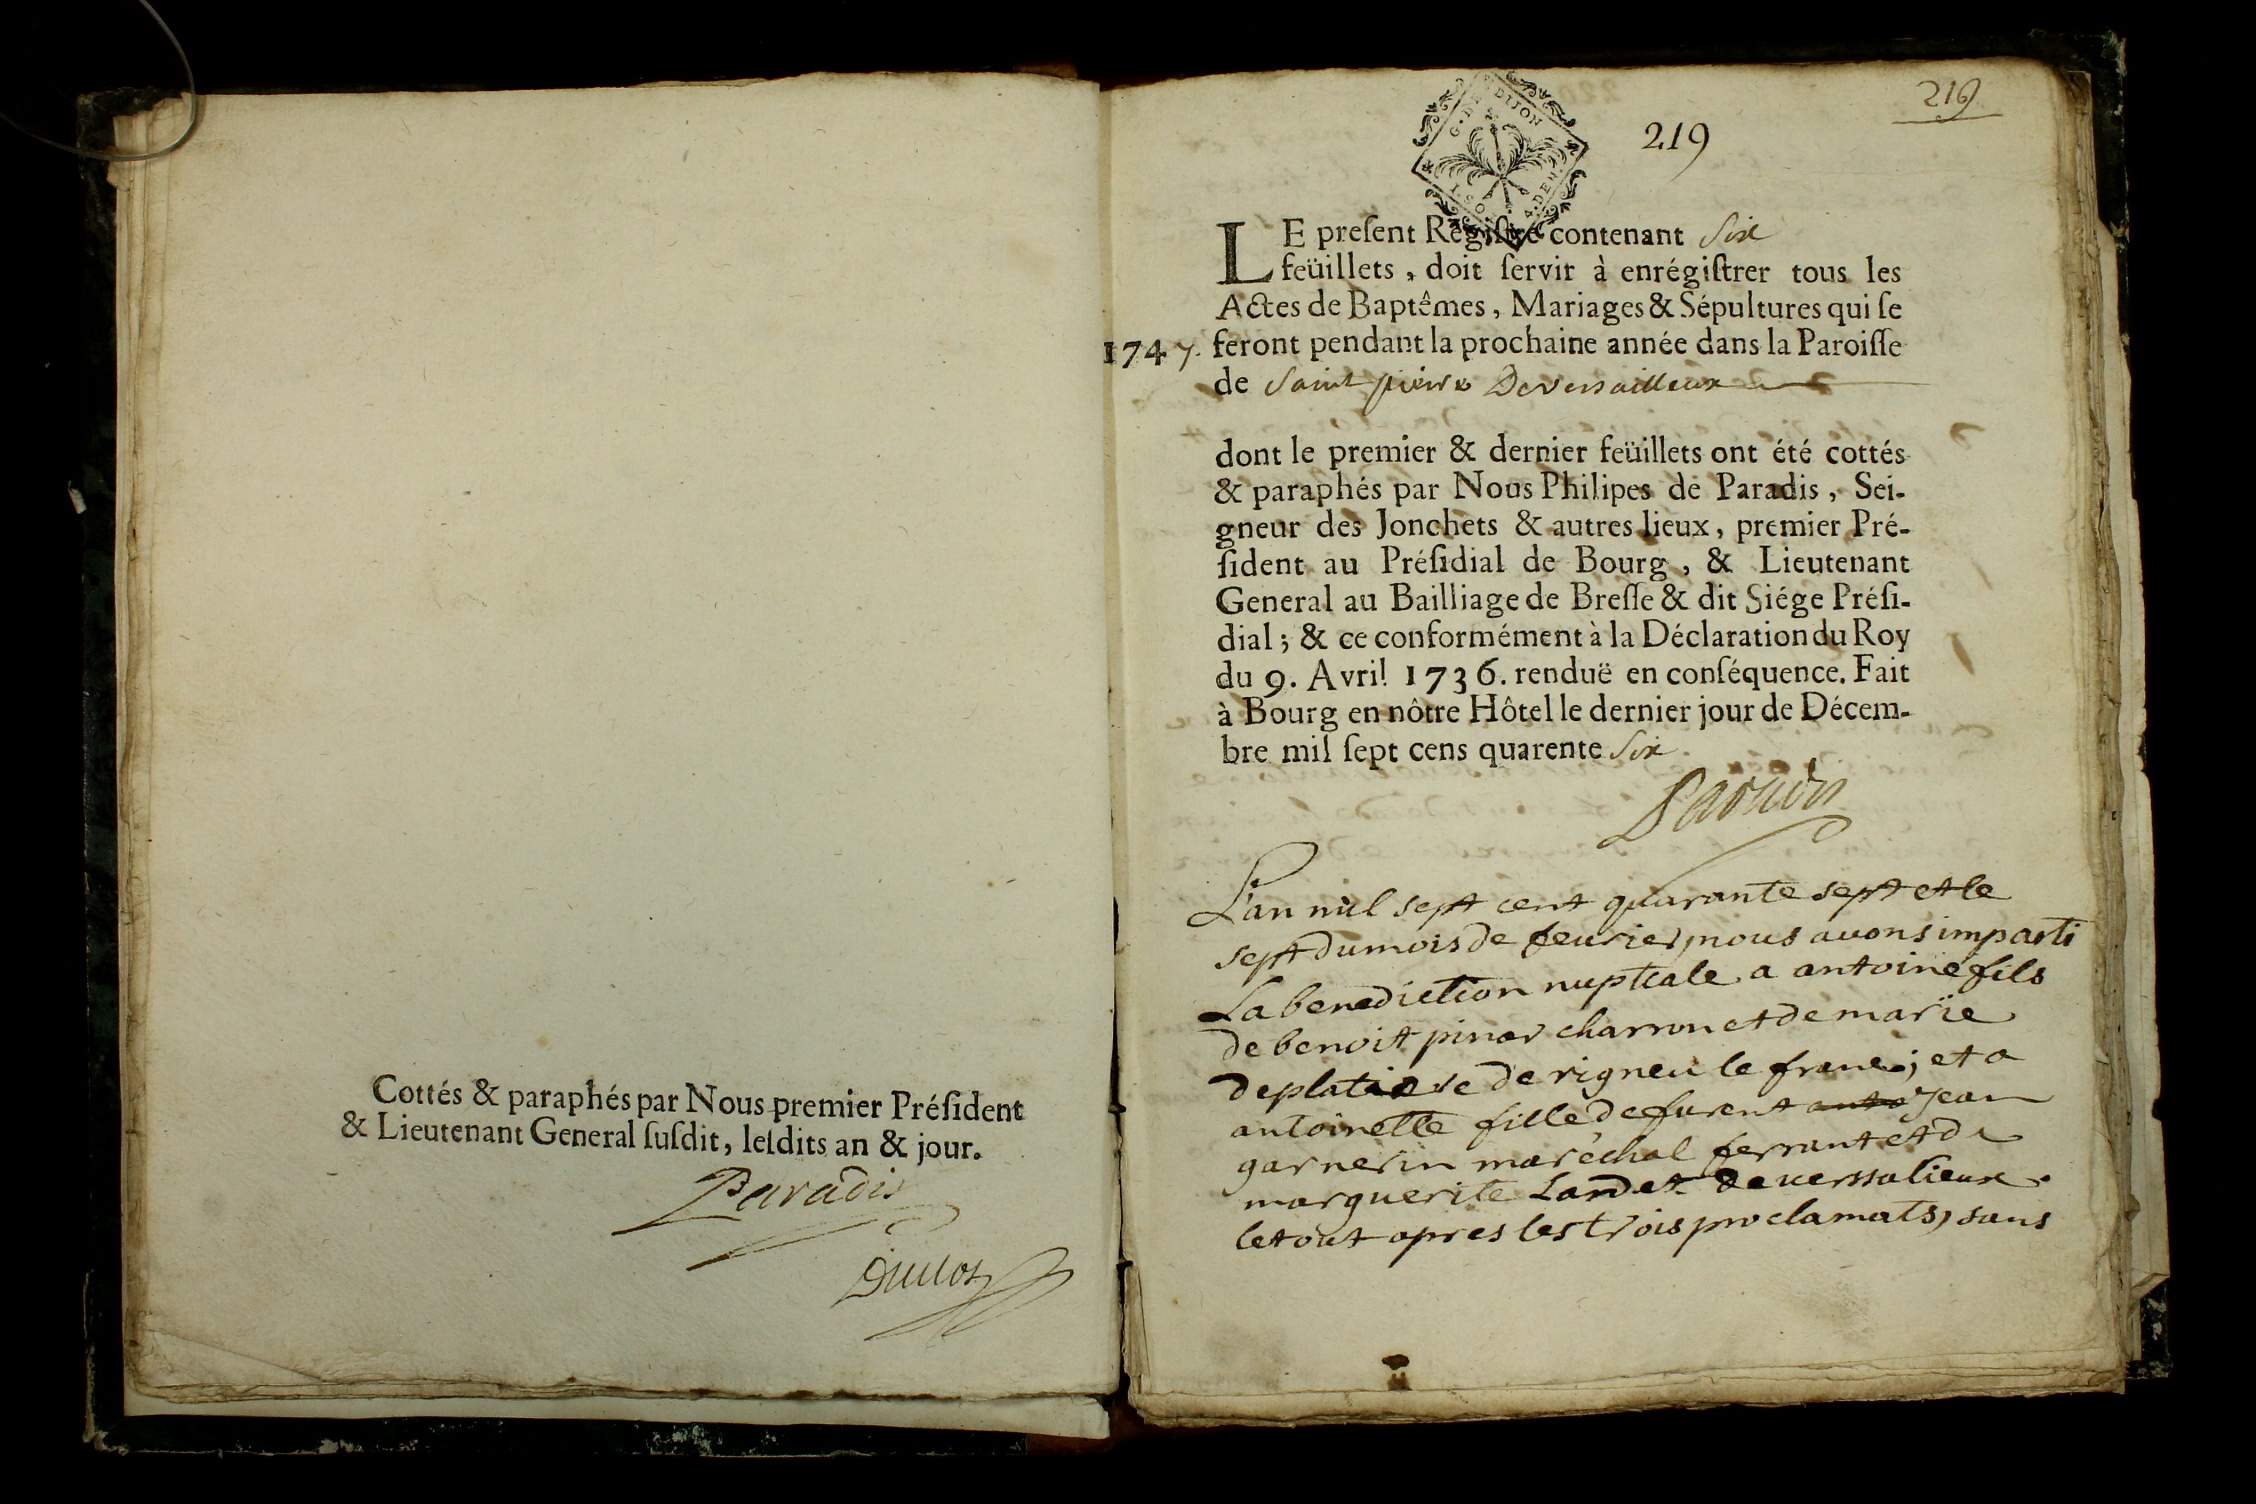 Cottés & paraphés par Nous premier Préſident
& Lieutenant General ſuſdit, leſdits an & jour.
Paradis
219
219
G. DE DIJON
4. DEN.
LE preſent Regiſtre contenant Six
feüillets, doit ſervir à enrégiſtrer tous les
Actes de Baptêmes, Mariages & Sépultures qui ſe
1747. feront pendant la prochaine année dans la Paroiſſe
de Saint pierre De versailleux
dont le premier & dernier feüillets ont été cottés
& paraphés par Nous Philipes de Paradis, Sei-
gneur des Jonchets & autres lieux, premier Pré-
ſident au Préſidial de Bourg, & Lieutenant
General au Bailliage de Breſſe & dit Siége Préſi-
dial; & ce conformément à la Déclaration du Roy
du 9. Avril 1736. renduë en conſéquence. Fait
à Bourg en nôtre Hôtel le dernier jour de Décem-
bre mil ſept cens quarente Six
Paradis
L'an mil sept cent quarante sept et le
sept du mois de feurier, nous auons imparti
La benediction nuptiale a antoine fils
de benoit piner charron et de marie
de rigneu le franc; et a
antoinette fille de furent anto Jean
garnerin maréchal ferrant et de
marguerite Lardet de uerssalieux.
le tout apres les trois proclamats, sans